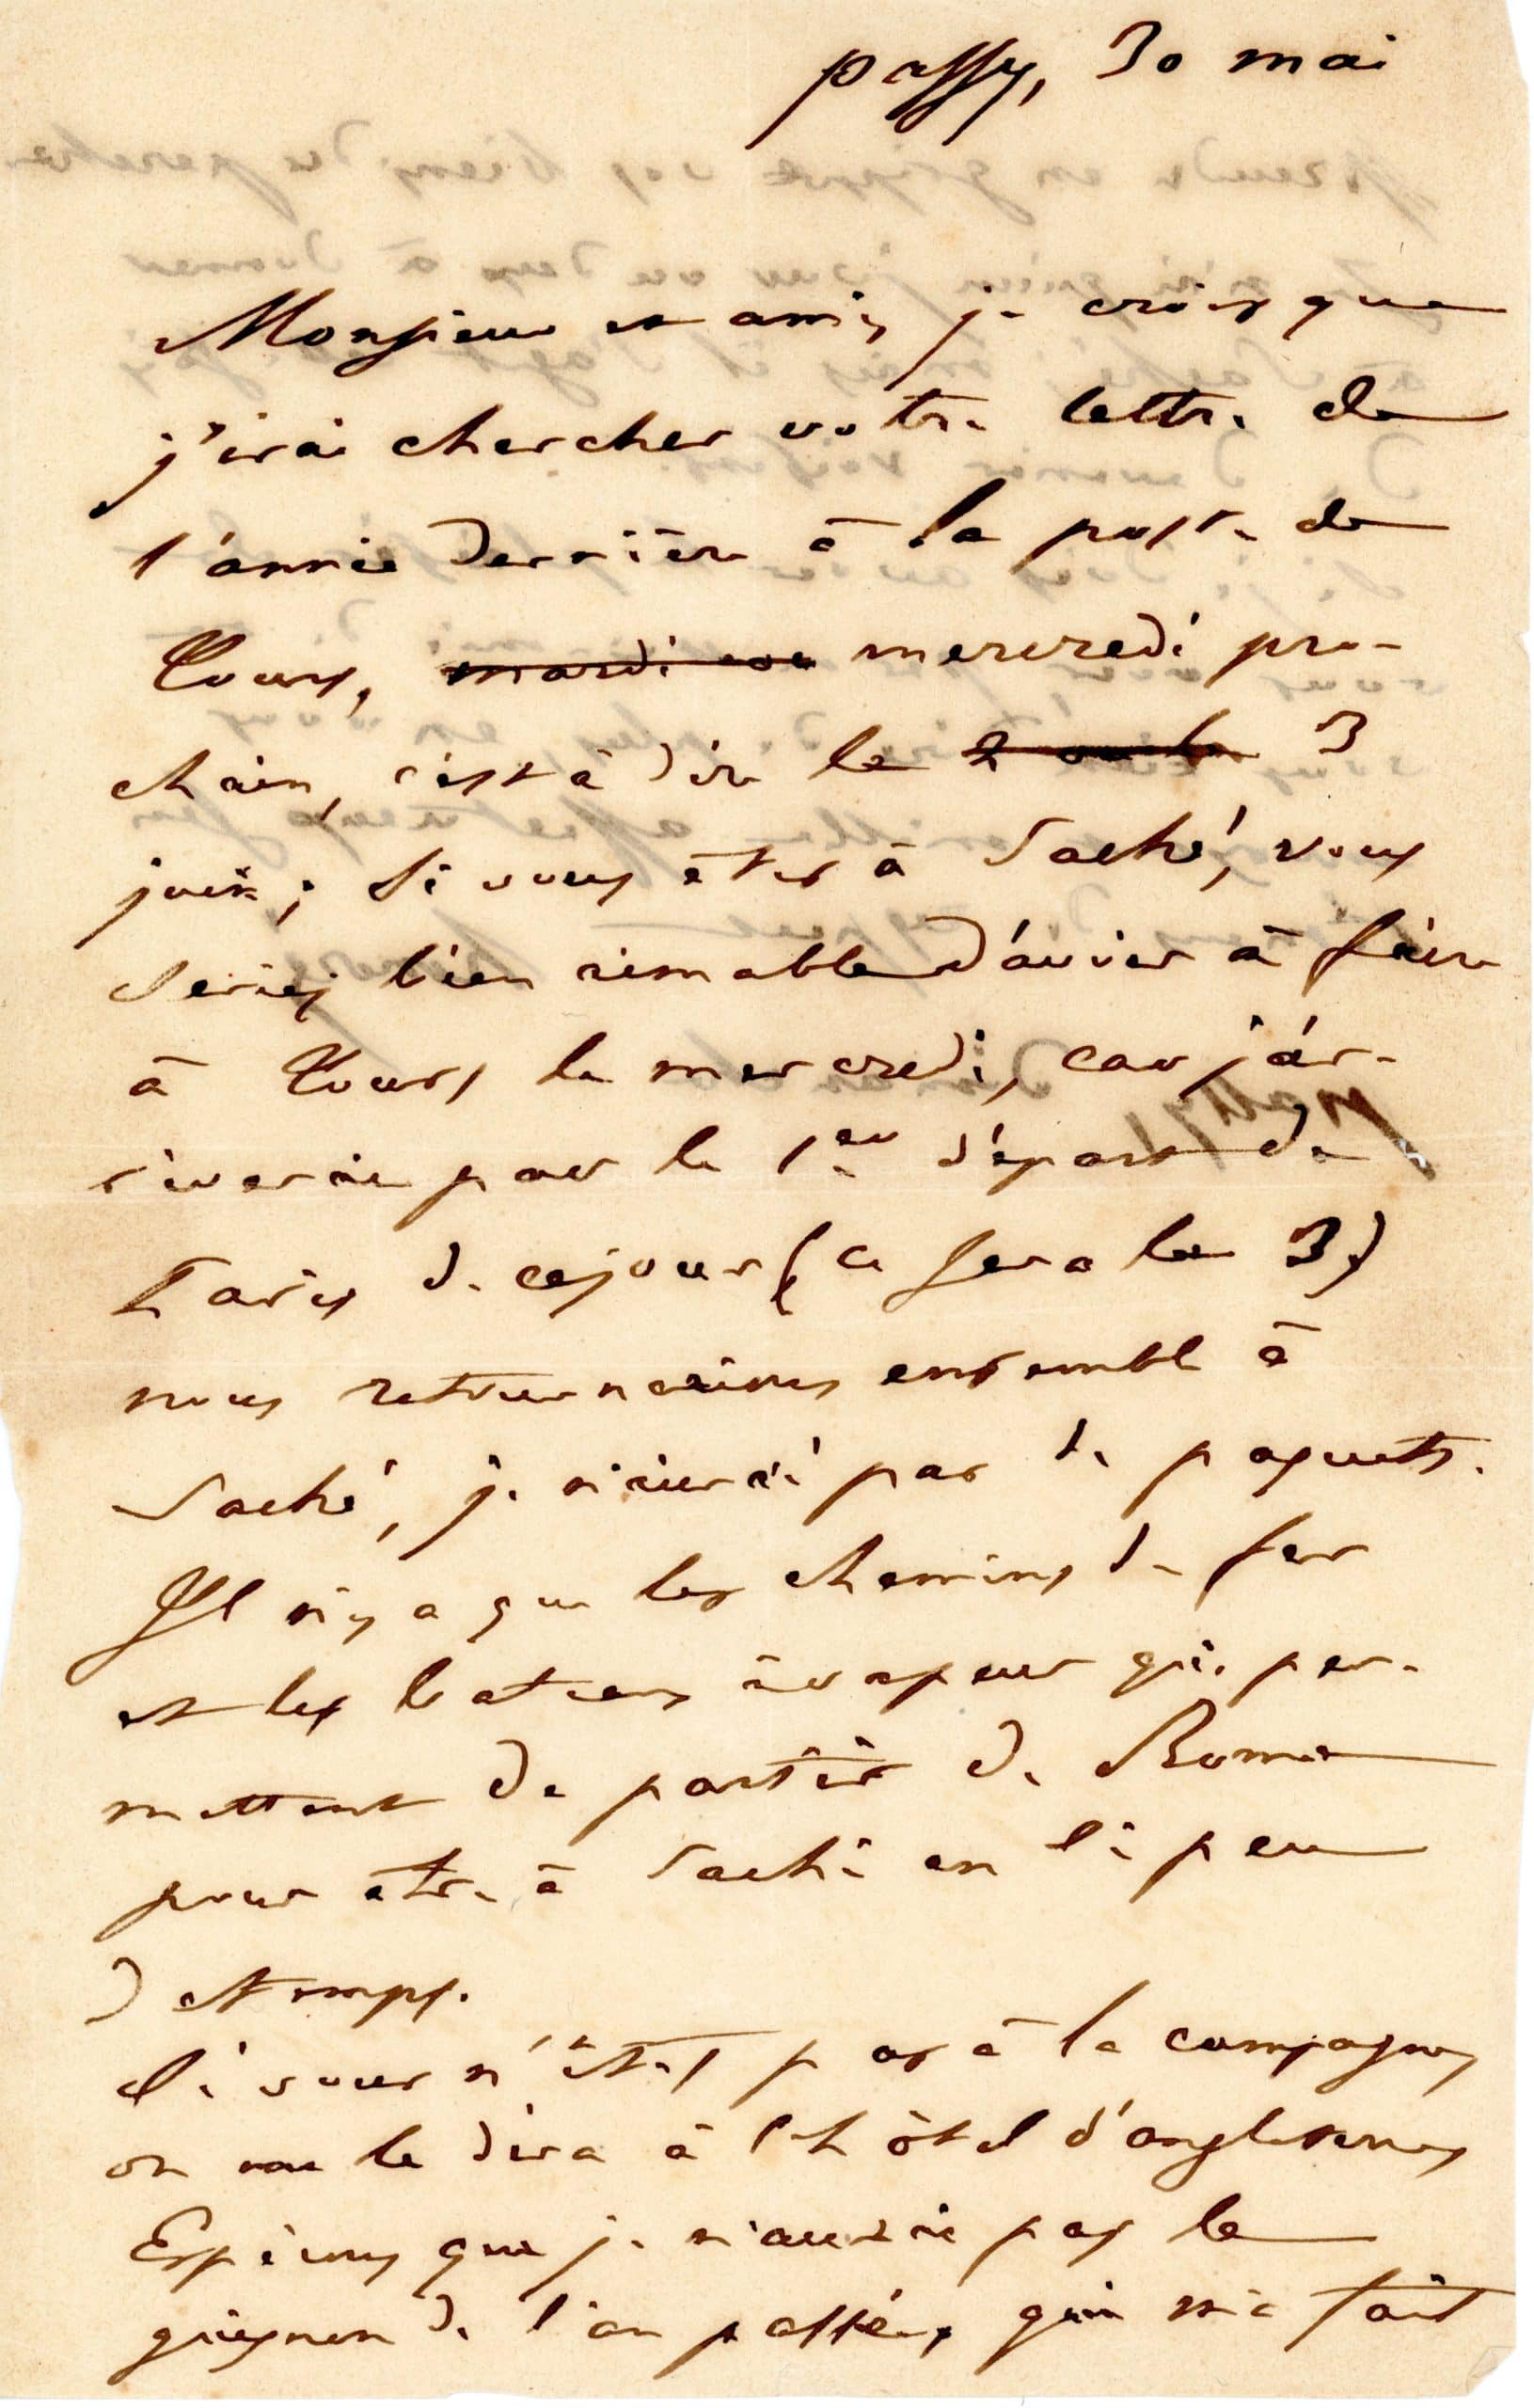 passy, 30 mai
Monsieur et ami, je crois que
j'irai chercher votre lettre de
l'année dernière à la poste de
Tours, mardi ou mercredi pro-
chain, c'est à dire le 2 ou le 3
juin ; si vous êtes à Saché, vous
seriez bien aimable d'avoir à faire
à Tours le mercredi, car j'ar-
riverai par le 1er départ de
Paris de ce jour (ce sera le 3)
nous retournerions ensemble à
Saché, je n'aurai pas de paquets.
Il n'y a que les chemins de fer
et les bateaux à vapeur qui per-
mettent de partir de Rome
pour être à Saché en si peu
de temps.
Si vous n'étiez pas à la campagne,
on me le dira à l'hôtel d'angleterre,
Espérons que je n'aurai pas le
guignon de l'an passé, qui m'a fait